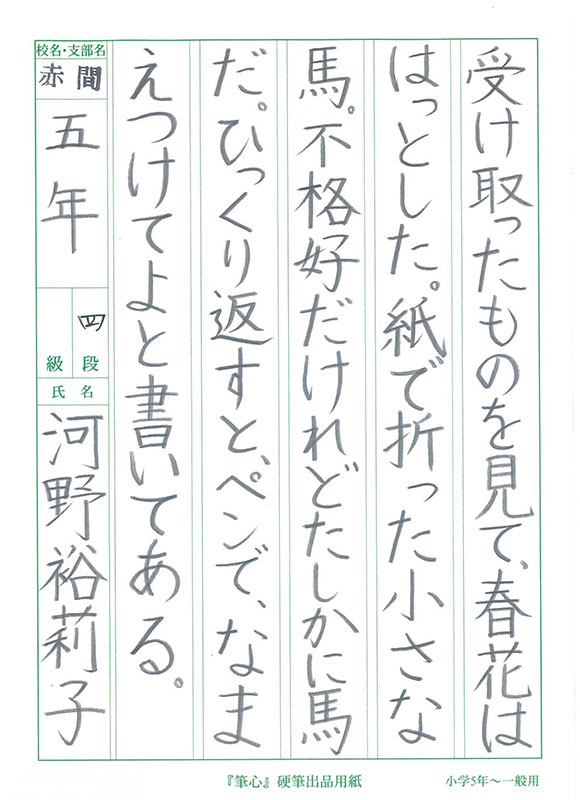 受け取ったものを見て、春花は
はっとした。紙で折った小さな
馬。不格好だけれどたしかに馬
だ。ひっくり返すと、ペンで、なま
えつけてよと書いてある。
校名・支部名
赤間
五年
四段
級
氏名
河野裕莉子
『筆心』硬筆出品用紙
小学5年～一般用